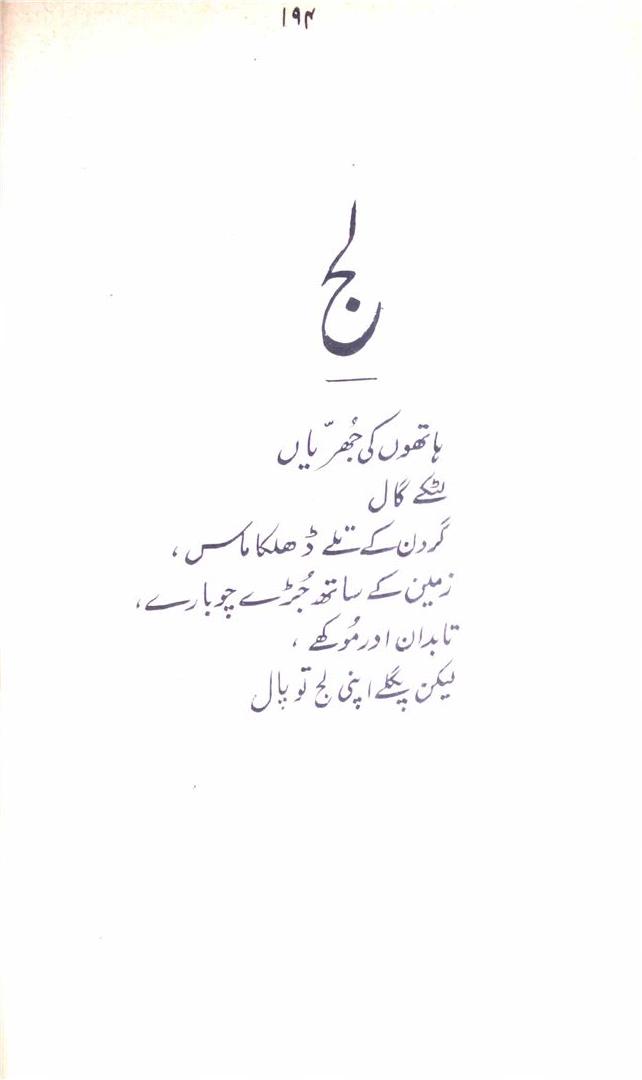 ۱۹۴
لج
ہاتھوں کی جُھرّیاں
لٹکے گال
گردن کے تلے ڈھلکا ماس ،
زمین کے ساتھ جُڑے چوبارے ،
تابدان اور مُوکھے ،
لیکن پگلے اپنی لج تو پال